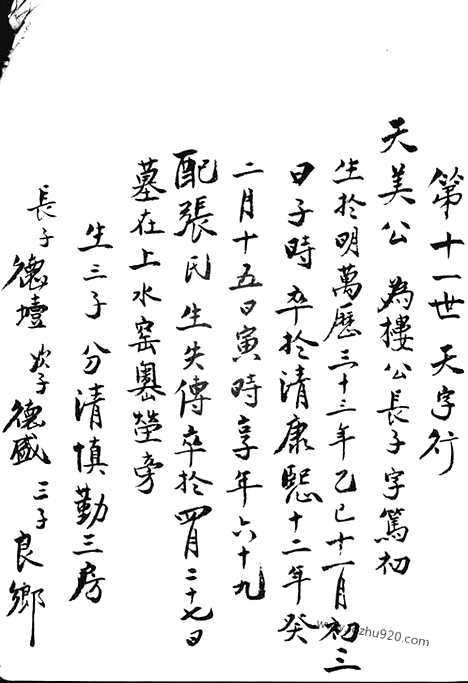 第十一世天字行
天美公 為摟公長子字篤初
生於明萬歷三十三年乙巳十一月初三
日子時卒於清康熙十二年癸
二月十五日寅時享年六十九
配張氏生失傳卒於四月二十七日
墓在上水窑塋旁
生三子分清慎勤三房
長子德壇次子德盛三子良鄉